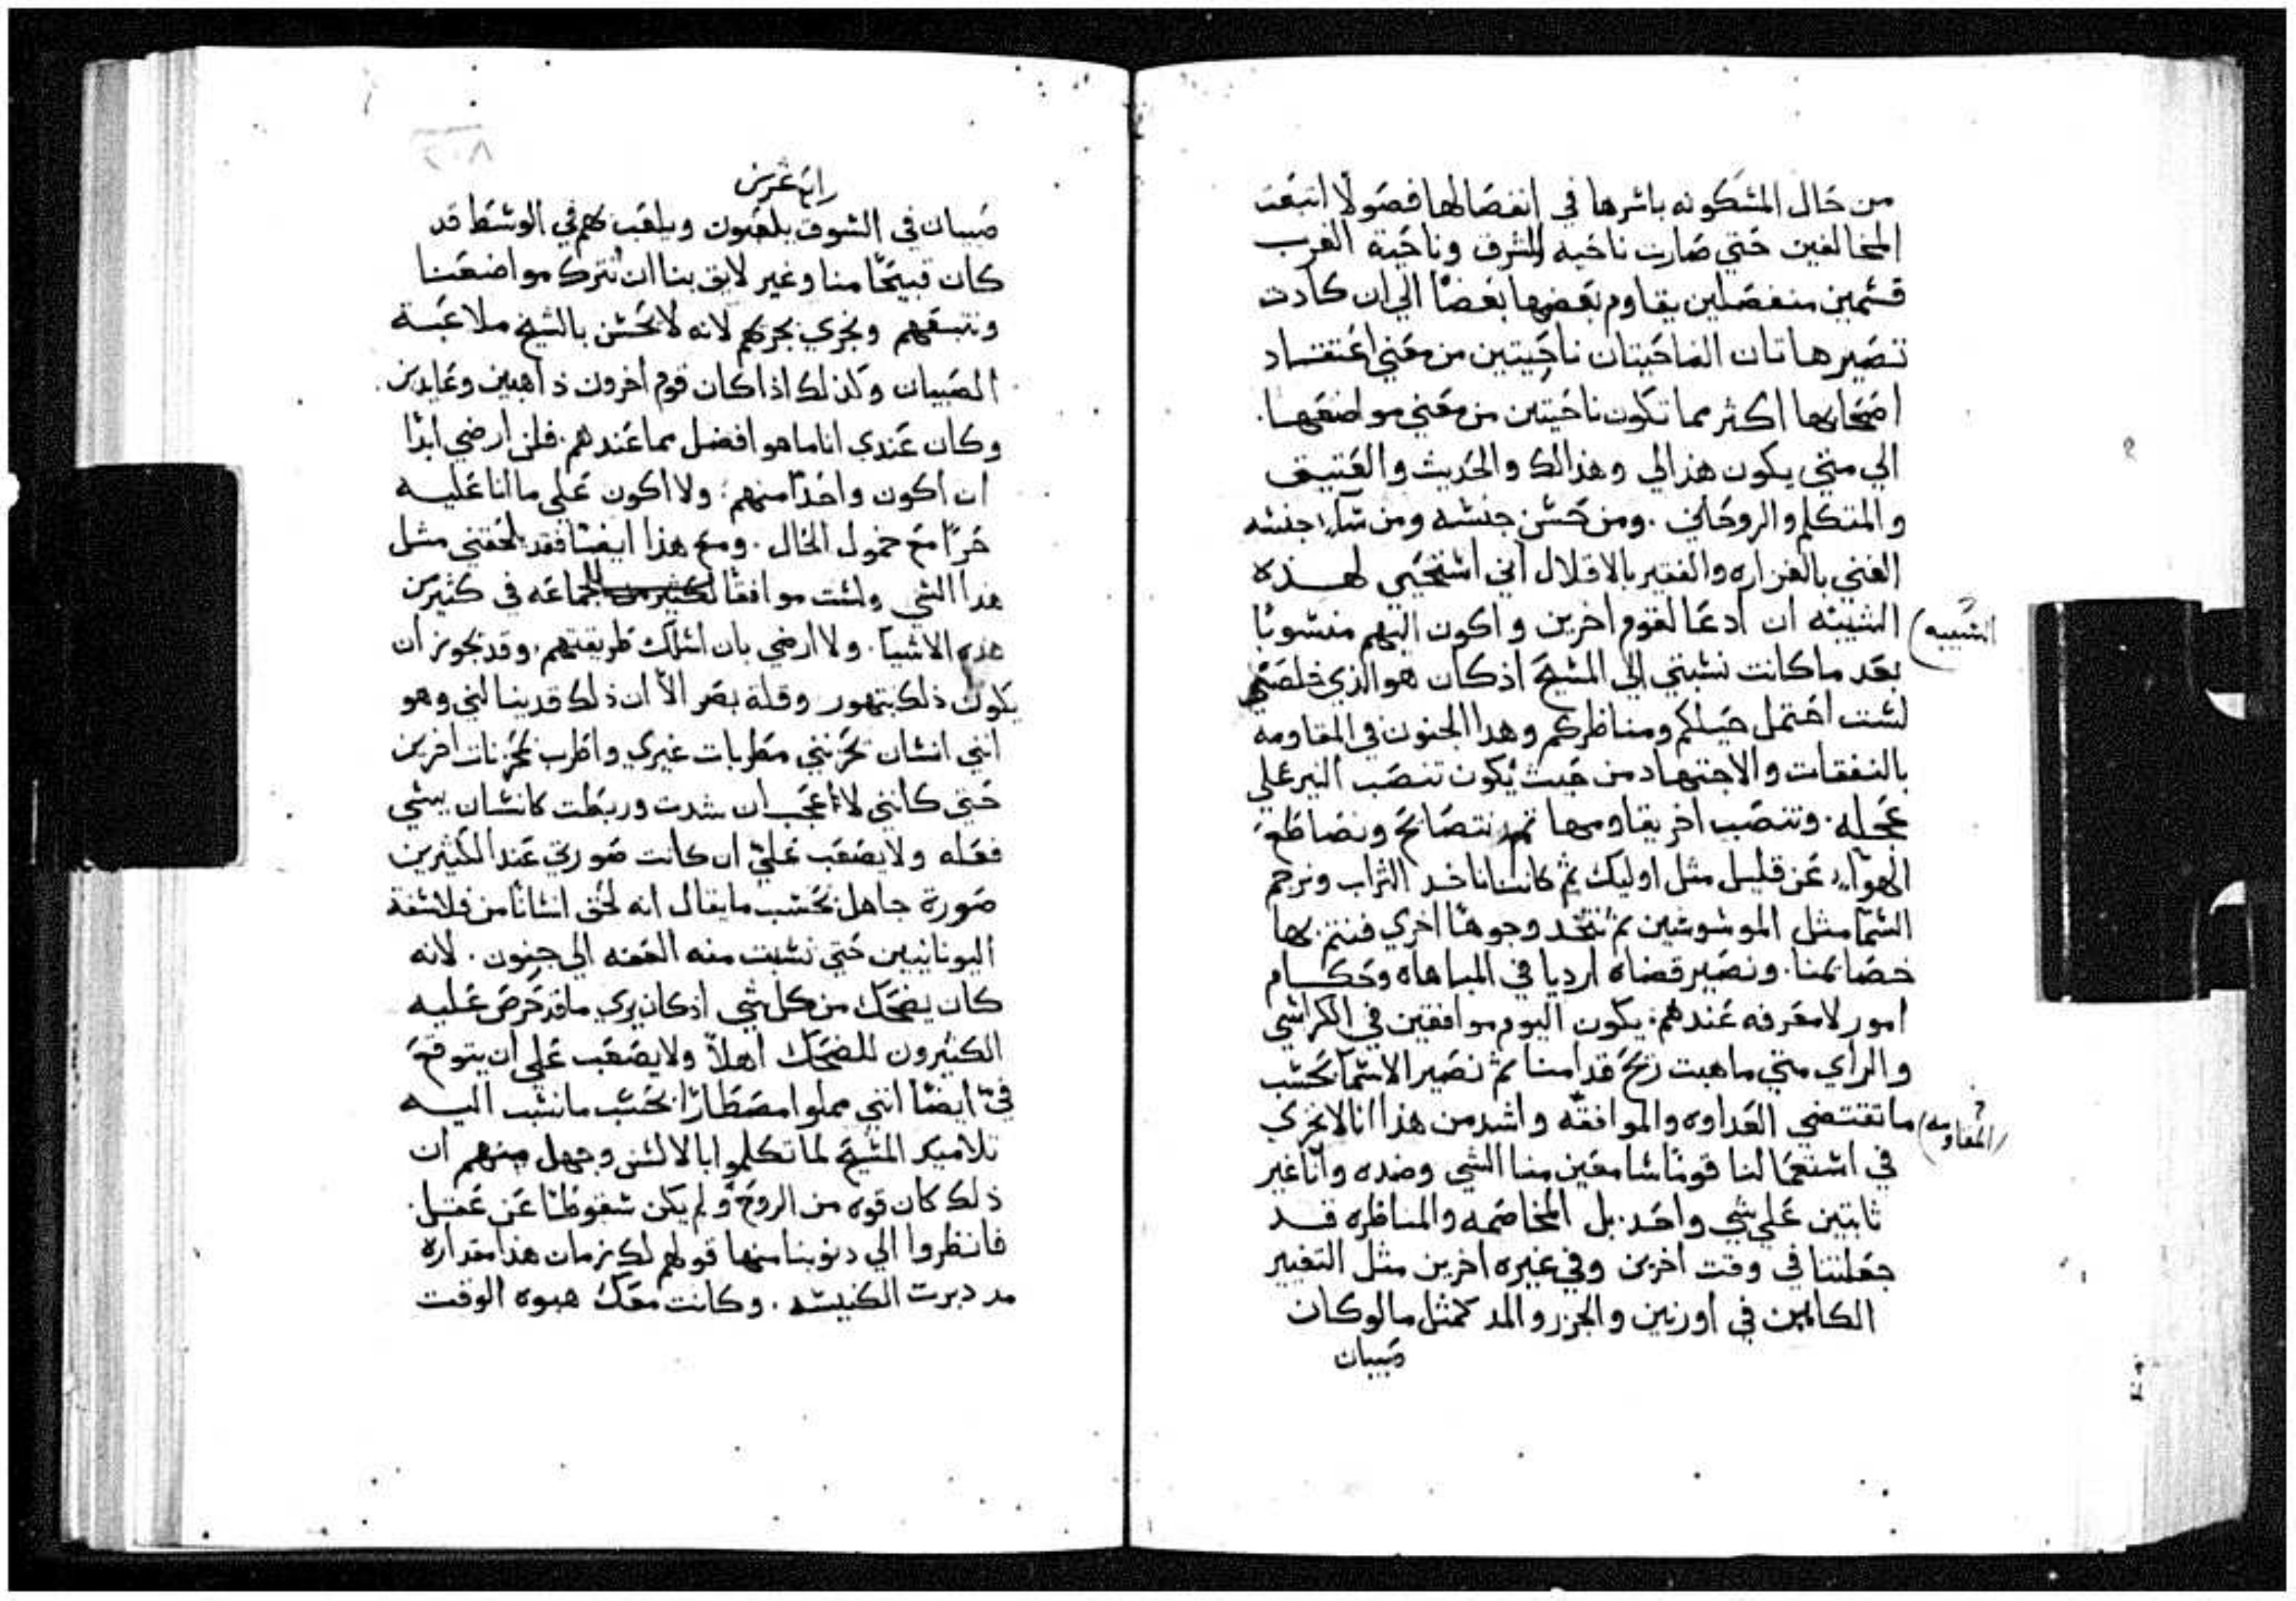 من حال المسكونه باسرها في انفصالها فصولا اتبعت
المخالفين حتي صارت ناحيه المشرق وناحية الغرب
قسمين منفصلين يقاوم بعضها بعضا الي ان كادت
تصير هاتان الناحيتان ناحيتين من معني اعتقاد
اصحابها اكثر مما تكون ناحيتين من معني مواضعها.
الي متي يكون هذا لي وهذا لك والحديث والعتيق
والمتكلم والروحاني. ومن حسن جنسه ومن ساء جنسه
الغني بالغزاره والفقير بالاقلال اني استحيي لهذه
الشيبه ان ادعا لقوم اخرين واكون اليهم منسوبا
(الشيبه)
بعد ما كانت نسبتي الي المسيح اذ كان هو الذي خلصني
لست احتمل حيلكم ومناظركم وهدا الجنون في المقاومه
بالنفقات والاجتهاد من حيث يكون تنصب النير علي
عجله. وتنصب اخر يقاومها نتصايح ونضاطع
الهواء عن قليل مثل اوليك ثم كاننا ناخد التراب ونرجم
السما مثل الموسوسين ثم نتخد وجوها اخري فنتم بها
خصايمنا. ونصير قضاه ارديا في المباهاه وحكام
امور لا معرفه عندهم. يكون اليوم موافقين في الكراسي
والراي متي ما هبت ريح قدامنا ثم نصير الاسما بحسب
ما تقتضي العداوه والموافقه واشد من هذا انا لا نخزي
(المقاومه)
في استعمالنا قوما سامعين منا الشي وضده وانا غير
ثابتين علي شي واحد. بل المخاصمه والمناظره قد
جعلتنا في وقت اخرين وفي غيره اخرين مثل التغيير
الكاين في اورنين والجزر والمد كمثل ما لو كان
صبيان
رابع عشر
صبيان في السوق يلعبون ويلعب لهم في الوسط قد
كان قبيحا منا وغير لايق بنا ان نترك مواضعنا
ونتبعهم ونجري بجريهم لانه لا يحسن بالشيخ ملاعبة
الصبيان وكذلك اذا كان قوم اخرون ذاهبين وعايدين.
وكان عندي انا ما هو افضل مما عندهم. فلن ارضي ابدا
ان اكون واحدا منهم. ولا اكون علي ما انا عليه
حرا مع خمول الحال. ومع هذا ايضا فقد لحقني مثل
هدا الشي ولست موافقا للجماعه في كثير من
هذه الاشيا. ولا ارضي بان اسلك طريقتهم. وقد يجوز ان
يكون ذلك بتهور وقلة بصر الا ان ذلك قد ينالني وهو
انني انسان تحزنني مطربات غيري واطرب بمحزنات اخرين
حتي كانني لا اعجب ان شدت وربطت كانسان يسي
فعله ولا يصعب علي ان كانت صورتي عند الكثيرين
صورة جاهل بحسب ما يقال انه لحق انسانا من فلاسفة
اليونانيين حتي نسبت منه العفه الي جنون. لانه
كان يضحك من كل شي اذ كان يري ما قد حرص عليه
الكثيرون للضحك اهلا ولا يصعب علي ان يتوقع
في ايضا انني مملوا مصطارا بحسب ما نسب اليه
تلاميد المسيح لما تكلموا بالالسن وجهل منهم ان
ذلك كان قوه من الروح ولم يكن سقوطا عن عقل.
فانظروا الي دنوبنا منها قولهم لك زمان هذا مقداره
مد دبرت الكنيسه. وكانت معك هبوه الوقت